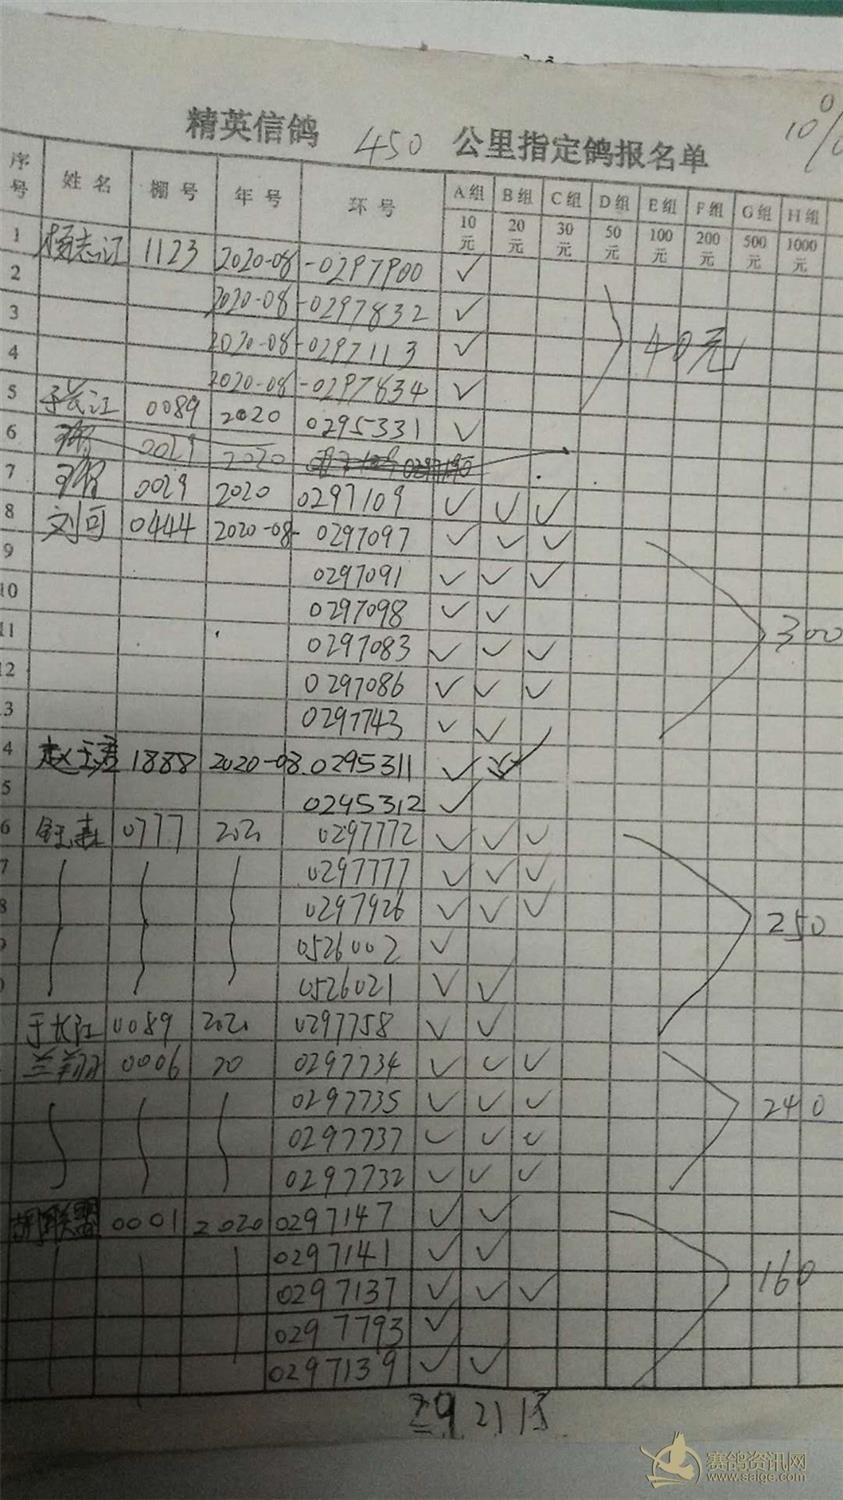 10%
精英信鸽 450 公里指定鸽报名单
序号 姓名 棚号 年号 环号 A组 B组 C组 D组 E组 F组 G组 H组
10元 20元 30元 50元 100元 200元 500元 1000元
1 杨志江 1123 2020-08 -0297900 ✓
2 2020-08 -0297832 ✓
3 2020-08 -0297113 ✓ 40元
4 2020-08 -0297834 ✓
5 于长江 0089 2020 0295331 ✓
6 0029 2020
7 0029 2020 0297109 ✓ ✓ ✓
8 刘可 0444 2020-08- 0297097 ✓ ✓ ✓
9 0297091 ✓ ✓ ✓
10 0297098 ✓ ✓ 300
11 0297083 ✓ ✓ ✓
12 0297086 ✓ ✓ ✓
3 0297743 ✓ ✓
4 1888 2020-08 0295311 ✓
5 0295312 ✓
6 0777 2020 0297772 ✓ ✓ ✓
7 0297777 ✓ ✓ ✓
8 0297926 ✓ ✓ ✓ 250
9 0526002 ✓
0 0526021 ✓ ✓
于长江 0089 2020 0297758 ✓ ✓
兰翔 0006 20 0297734 ✓ ✓ ✓
0297735 ✓ ✓ ✓ 240
0297737 ✓ ✓ ✓
0297732 ✓ ✓ ✓
联盟 0001 2020 0297147 ✓ ✓
0297141 ✓ ✓
0297137 ✓ ✓ ✓ 160
0297793 ✓
0297139 ✓ ✓
29 21 13
赛鸽资讯网
www.saige.com